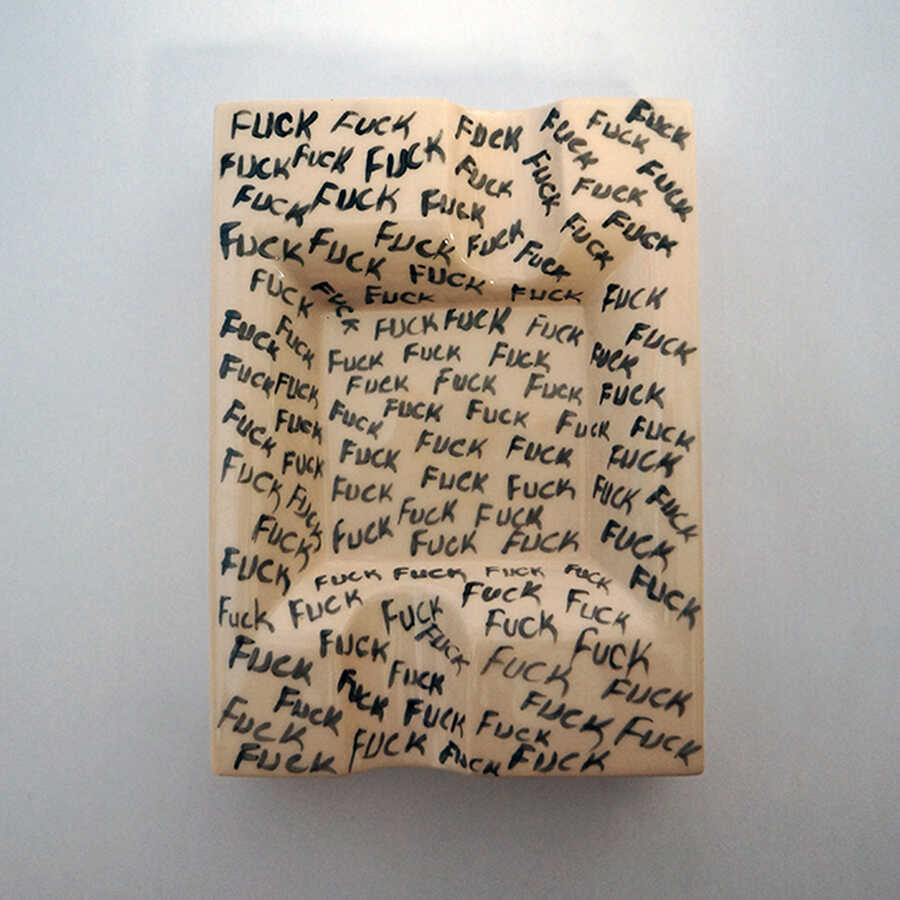 FUCK FUCK FUCK FUCK FUCK FUCK
FUCK FUCK FUCK FUCK FUCK FUCK FUCK
FUCK FUCK FUCK FUCK FUCK
FUCK FUCK FUCK FUCK FUCK FUCK
FUCK FUCK FUCK FUCK FUCK FUCK
FUCK FUCK FUCK FUCK FUCK FUCK
FUCK FUCK FUCK FUCK FUCK
FUCK FUCK FUCK FUCK FUCK FUCK
FUCK FUCK FUCK FUCK FUCK FUCK FUCK
FUCK FUCK FUCK FUCK FUCK
FUCK FUCK FUCK FUCK FUCK FUCK FUCK
FUCK FUCK FUCK FUCK FUCK
FUCK FUCK FUCK FUCK
FUCK FUCK FUCK FUCK FUCK FUCK
FUCK FUCK FUCK FUCK FUCK FUCK
FUCK FUCK FUCK FUCK FUCK
FUCK FUCK FUCK FUCK
FUCK FUCK FUCK FUCK FUCK
FUCK FUCK FUCK FUCK